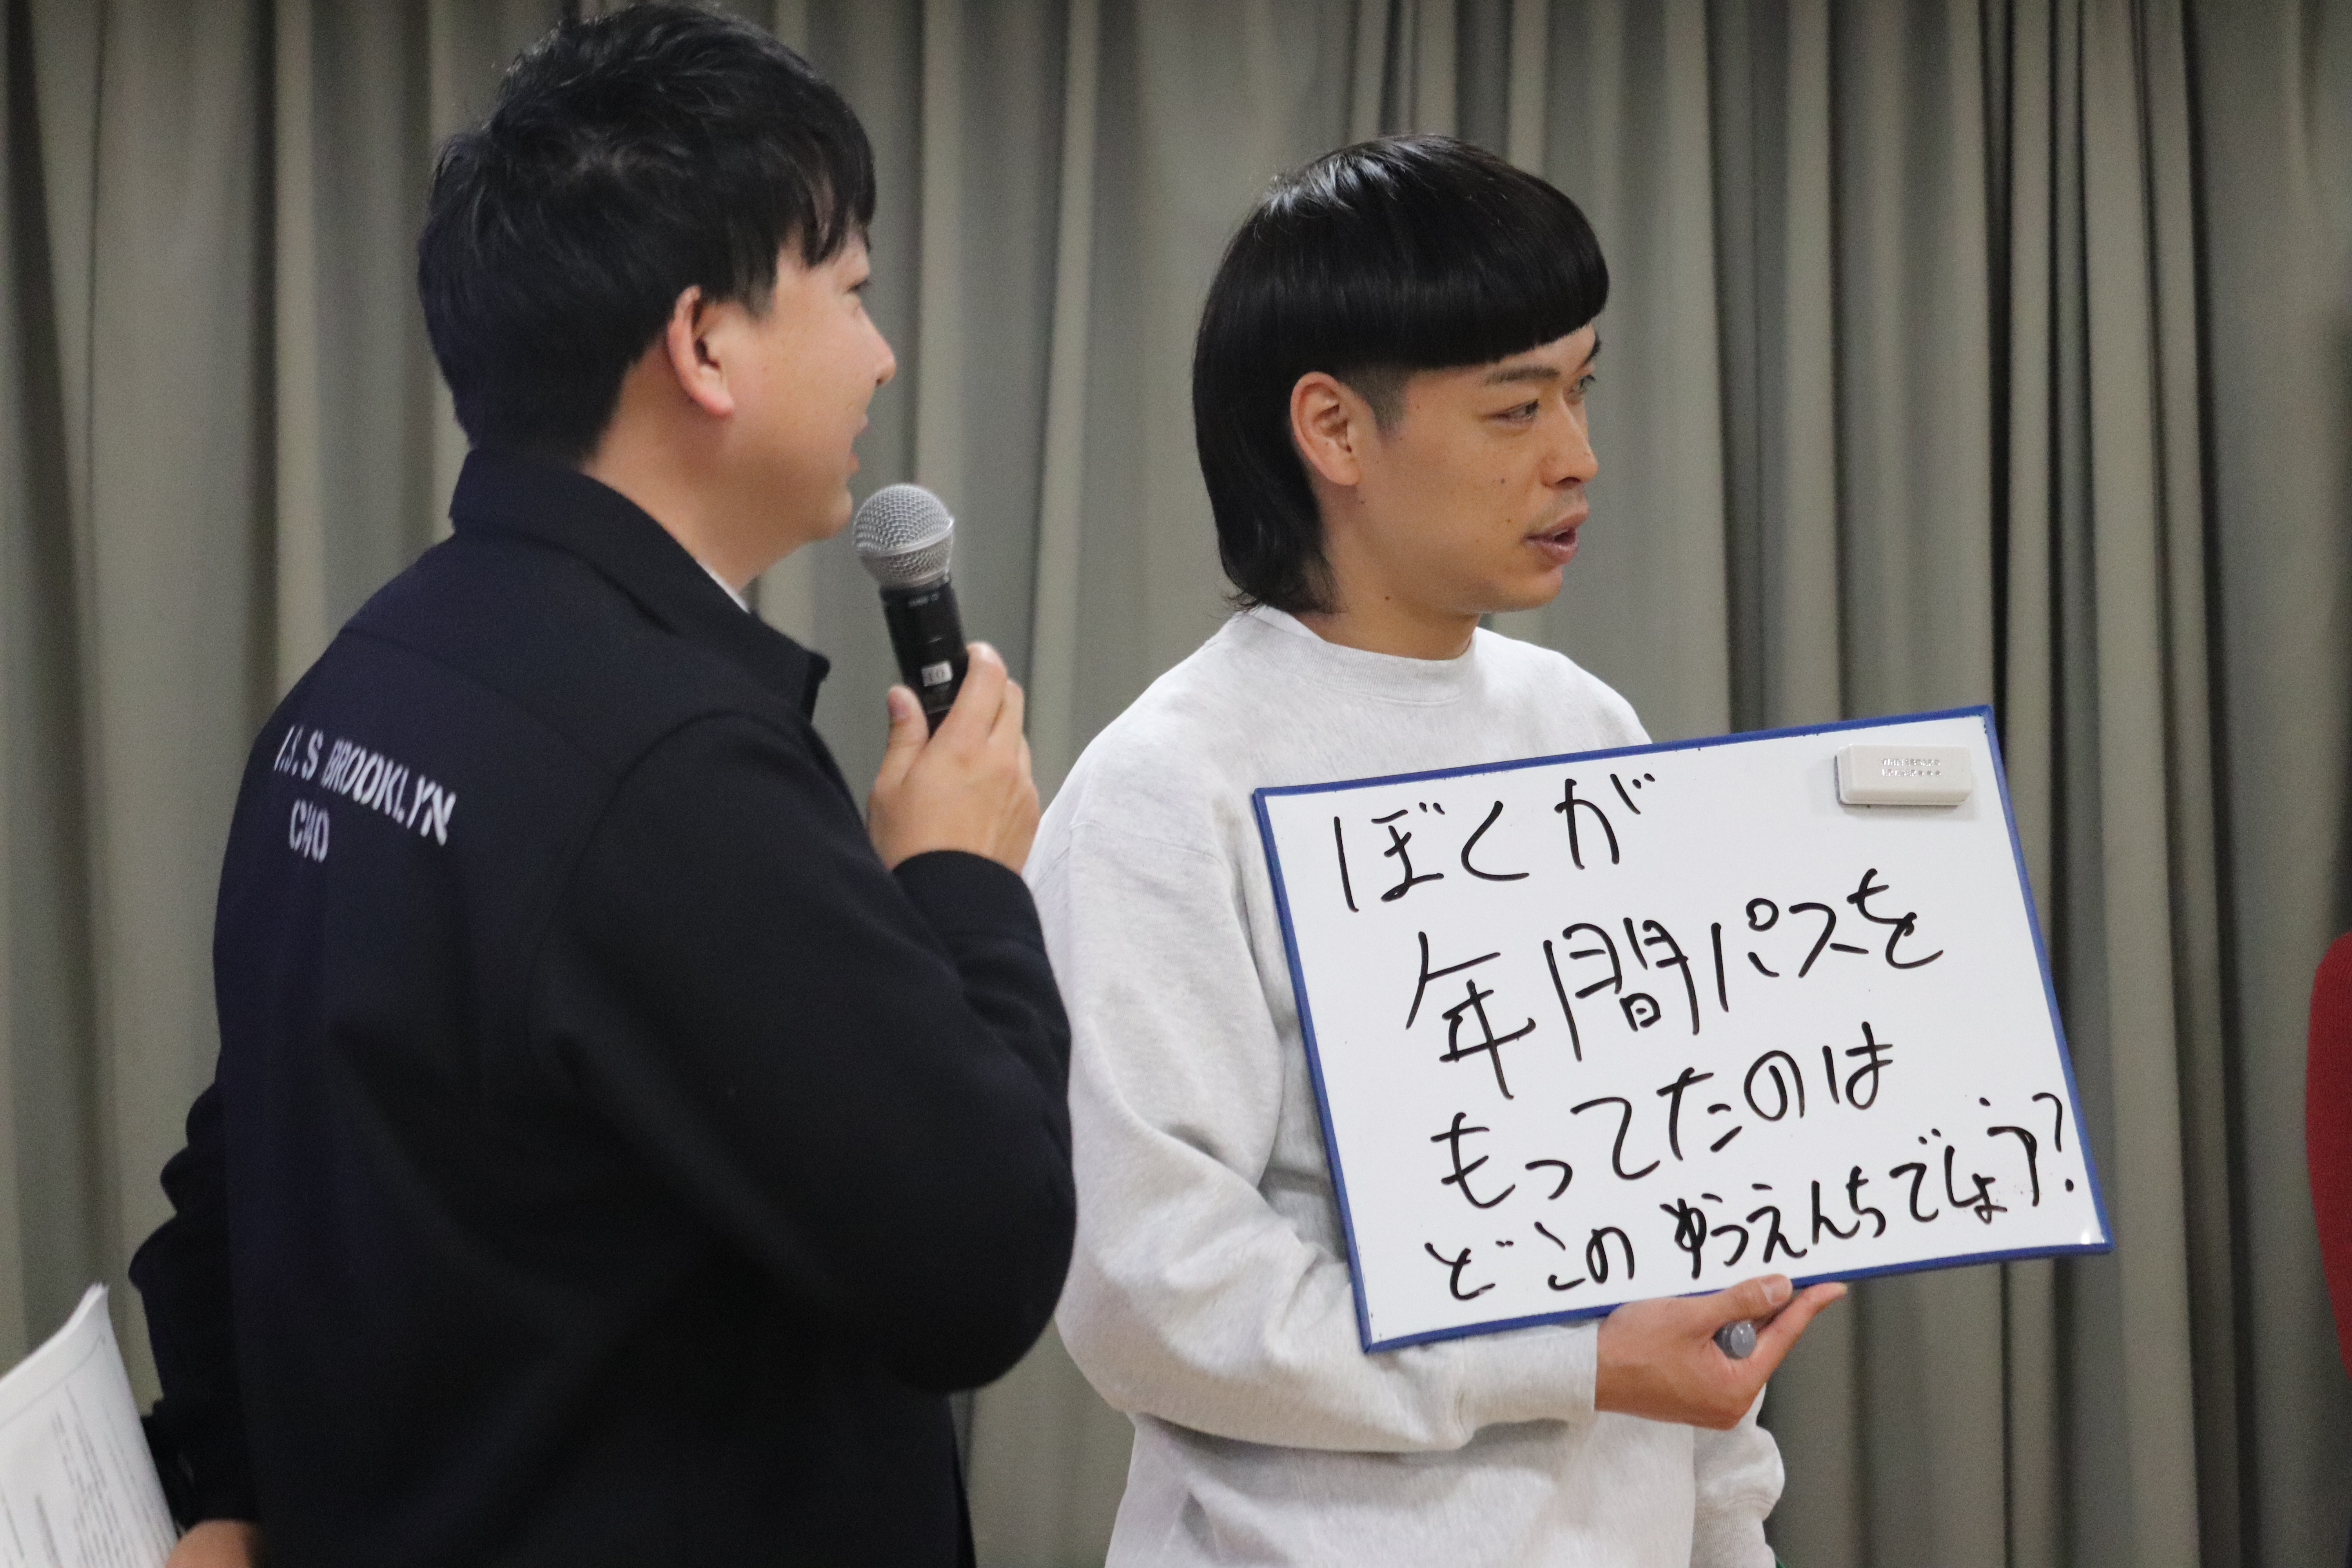 I.S.S BROOKLYN
CHO
ぼくが
年間パスを
もってたのは
どこのゆうえんちでしょう?